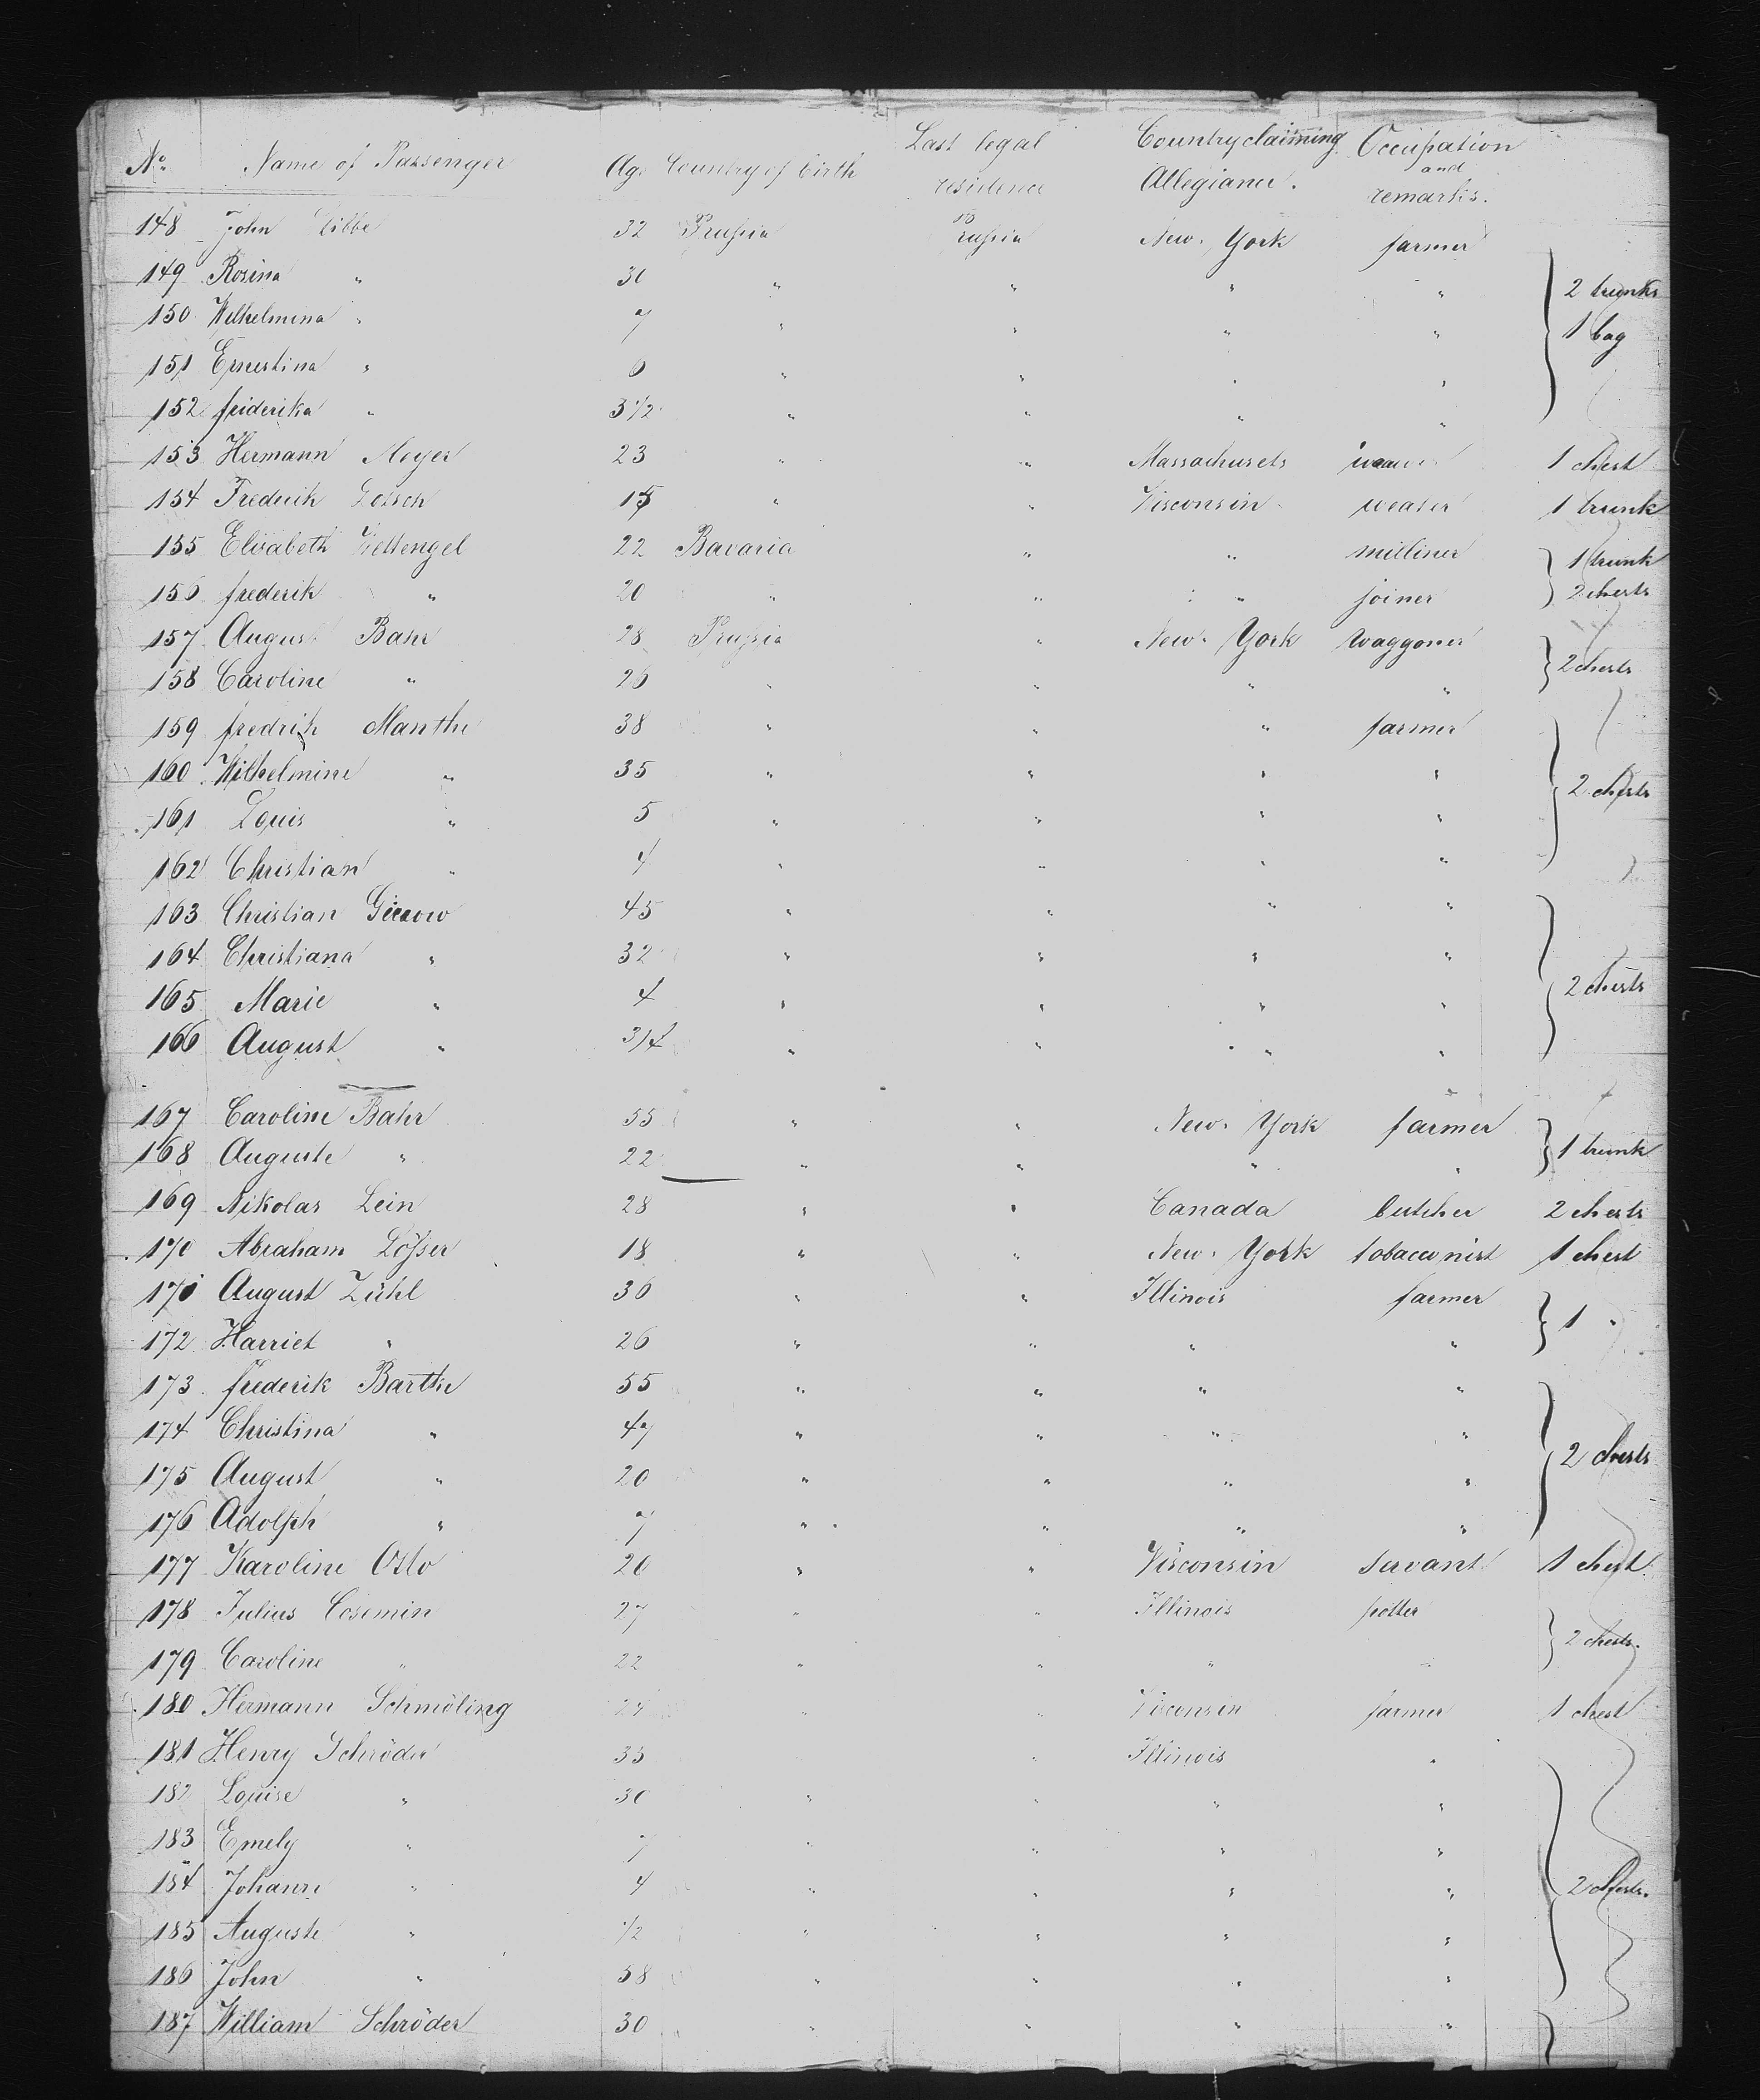 No. Name of Passenger Age Country of birth Last legal residence Country claiming Allegiance. Occupation and remarks.
148 John Libbe 32 Prussia Prussia New-York farmer
149 Rosina " 30 " " " "
2 trunks
150 Wilhelmina " 7 " " " "
1 bag
151 Ernestina " 6 " " " "
152 friderika " 3 1/2 " " " "
153 Hermann Meyer 23 " " Massachusets weaver 1 chest
154 Frederik 15 " " Wisconsin weaver 1 trunk
155 Elisabeth Wettengel 22 Bavaria " " milliner 1 trunk
156 frederik " 20 " " " joiner 2 chests
157 August Bahr 28 Prussia " New-York waggoner
2 chests
158 Caroline " 26 " " " "
159 fredrik Manthe 38 " " " farmer
160 Wilhelmine " 35 " " " "
2 chests
161 Louis " 5 " " " "
162 Christian " 4 " " " "
163 Christian 45 " " " "
164 Christiana " 32 " " " "
2 chests
165 Marie " 4 " " " "
166 August " 3/4 " " " "
167 Caroline Bahr 55 " " New-York farmer
1 trunk
168 Auguste " 22 " " " "
169 Nikolas Lein 28 " " Canada butcher 2 chests
170 Abraham Lösser 18 " " New-York tobacconist 1 chest
171 August Zühl 36 " " Illinois farmer
1 "
172 Harriet " 26 " " " "
173 frederik Barthe 55 " " " "
174 Christina " 47 " " " "
2 chests
175 August " 20 " " " "
176 Adolph " 7 " " " "
177 Karoline Otto 20 " " Wisconsin servant 1 chest
178 Julius Cosemin 27 " " Illinois potter
2 chests.
179 Caroline " 22 " " " "
180 Hermann Schmöling 24 " " Wisconsin farmer 1 chest
181 Henry Schröder 35 " Illinois "
182 Louise " 30 " " " "
183 Emely " 7 " " " "
184 Johann " 4 " " " "
2 chests.
185 Auguste " 1/2 " " " "
186 John " 58 " " " "
187 William Schröder 30 " " " "